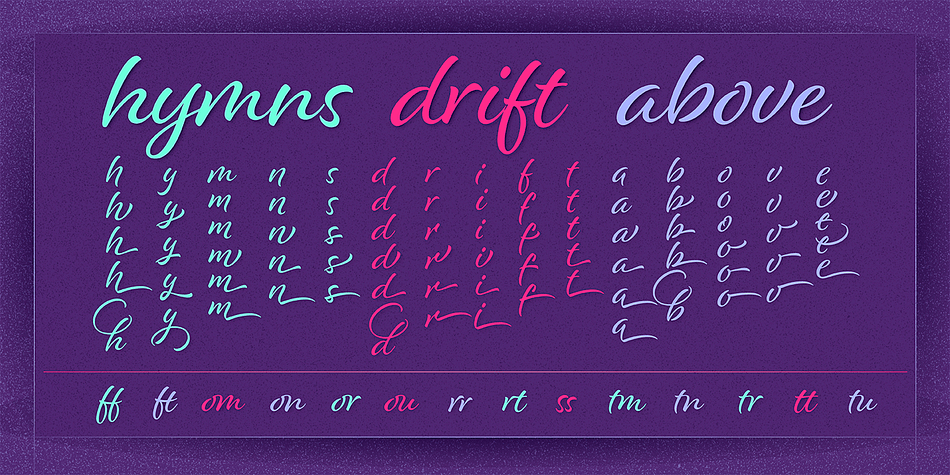 hymns drift above
h y m n s d r i f t a b o v e
h y m n s d r i f t a b o v e
h y m n s d r i f t a b o v e
h y m n s d r i f t a b o v e
h y m n s d r i f t a b o v e
m d r i a o
ff ft om on or ou rr rt ss tm tn tr tt tu